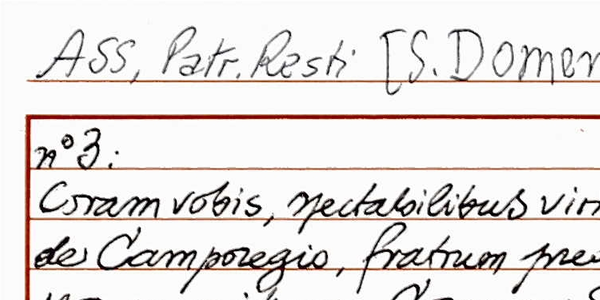 ASS, Patr. Resti [S. Domen
n° 3:
Coram vobis, spectabilibus viri
de Camporegio, fratrum pre